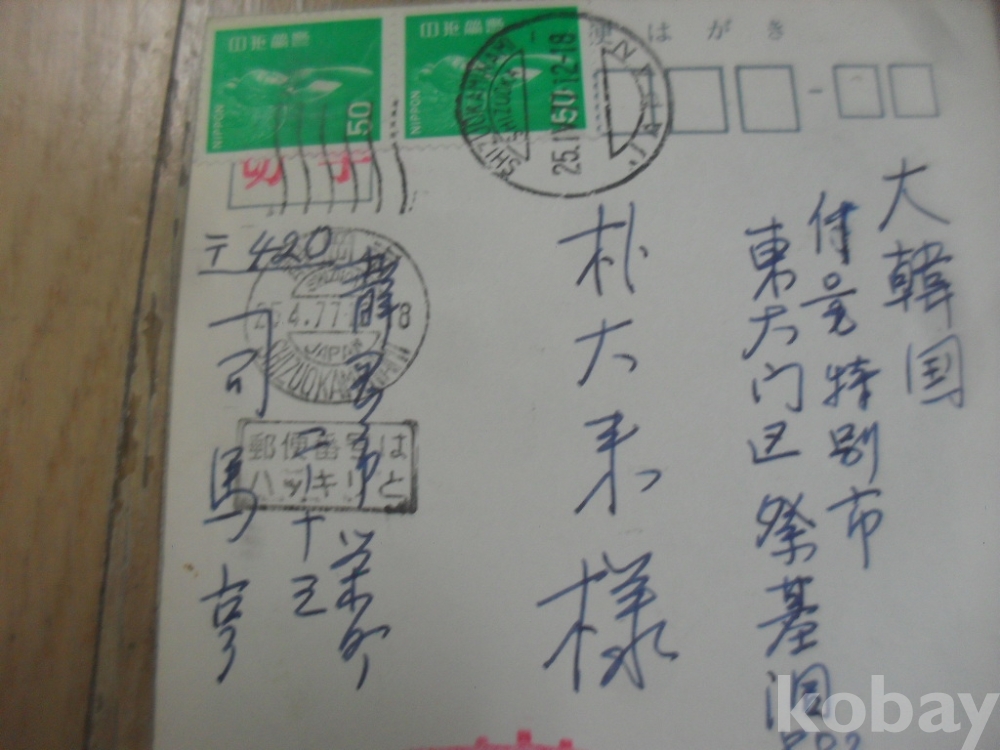 日本郵便
NIPPON
50
日本郵便
NIPPON
50
便はがき
SHIZUOKA
25.IV 12-18
大韓国
特別市
東大门区祭基洞
朴大来様
〒420
静岡市栄町
司馬
25.4.77
JAPAN
SHIZUOKA
郵便番号は
ハッキリと
kobay